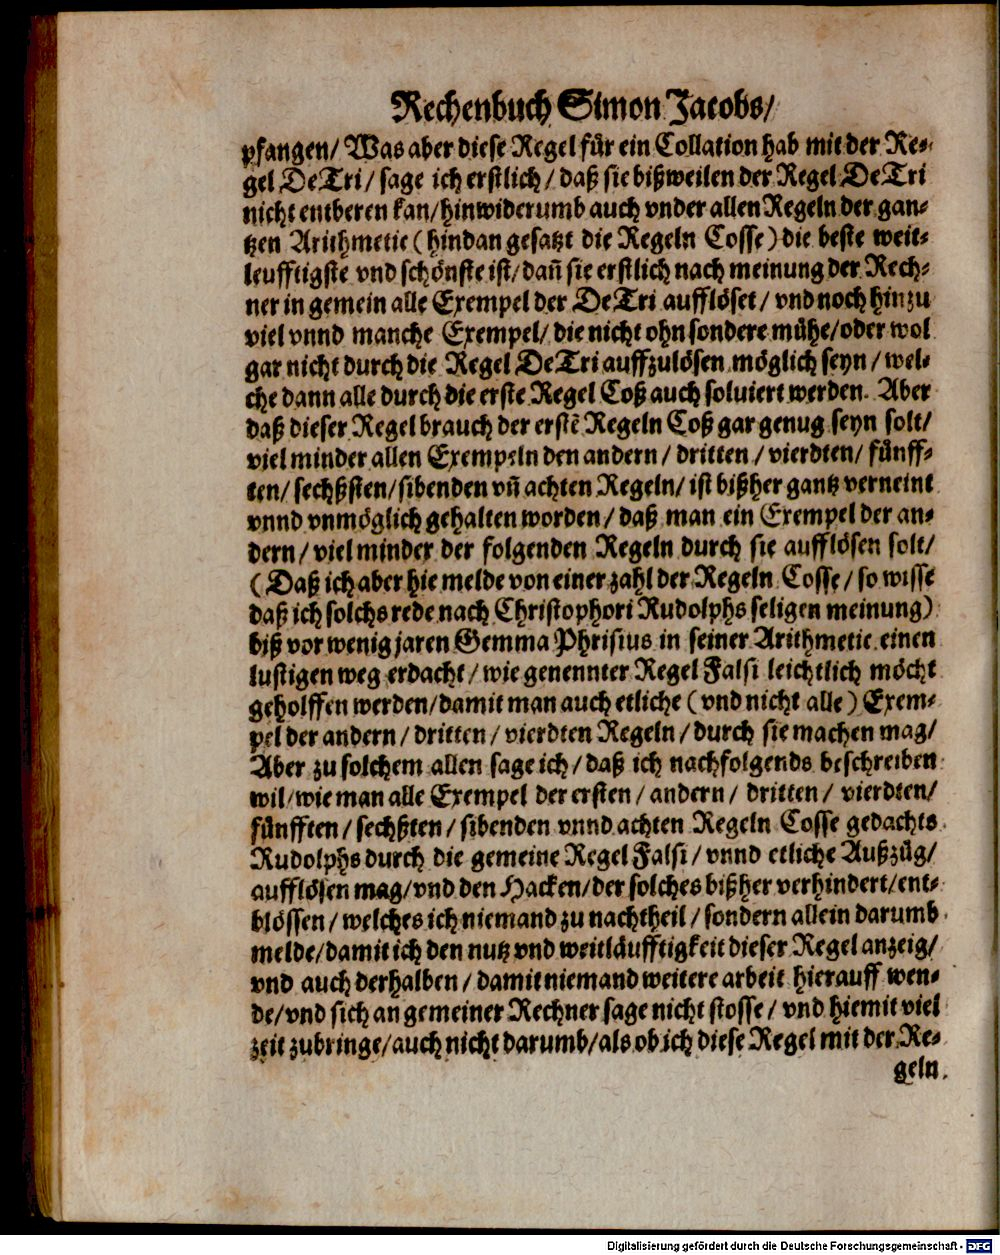 Rechenbuch Simon Jacobs/
pfangen/ Was aber diese Regel für ein Collation hab mit der Re⸗
gel DeTri/ sage ich erstlich/ daß sie bißweilen der Regel DeTri
nicht entberen kan/ hinwiderumb auch vnder allen Regeln der gan⸗
tzen Arithmetic (hindan gesatzt die Regeln Cosse) die beste weit⸗
leufftigste vnd schönste ist/ dañ sie erstlich nach meinung der Rech⸗
ner in gemein alle Exempel der DeTri aufflöset/ vnd noch hinzu
viel vnnd manche Exempel/ die nicht ohn sondere mühe/ oder wol
gar nicht durch die Regel DeTri auffzulösen möglich seyn/ wel⸗
che dann alle durch die erste Regel Coß auch soluiert werden. Aber
daß dieser Regel brauch der erstẽ Regeln Coß gar genug seyn solt/
viel minder allen Exempeln den andern/ dritten/ vierdten/ fünff⸗
ten/ sechßsten/ sibenden vñ achten Regeln/ ist bißher gantz verneint
vnnd vnmöglich gehalten worden/ daß man ein Exempel der an⸗
dern/ viel minder der folgenden Regeln durch sie aufflösen solt/
(Daß ich aber hie melde von einer zahl der Regeln Cosse/ so wisse
daß ich solchs rede nach Christophori Rudolphs seligen meinung)
biß vor wenig jaren Gemma Phrisius in seiner Arithmetic einen
lustigen weg erdacht/ wie genennter Regel Falsi leichtlich möcht
geholffen werden/ damit man auch etliche (vnd nicht alle) Exem⸗
pel der andern/ dritten/ vierdten Regeln/ durch sie machen mag/
Aber zu solchem allen sage ich/ daß ich nachfolgends beschreiben
wil/ wie man alle Exempel der ersten/ andern/ dritten/ vierdten/
fünfften/ sechßten/ sibenden vnnd achten Regeln Cosse gedachts
Rudolphs durch die gemeine Regel Falsi/ vnnd etliche Außzüg/
aufflösen mag/ vnd den Hacken/ der solches bißher verhindert/ ent⸗
blössen/ welches ich niemand zu nachtheil/ sondern allein darumb
melde/ damit ich den nutz vnd weitläufftigkeit dieser Regel anzeig/
vnd auch derhalben/ damit niemand weitere arbeit hierauff wen⸗
de/ vnd sich an gemeiner Rechner sage nicht stosse/ vnd hiemit viel
zeit zubringe/ auch nicht darumb/ als ob ich diese Regel mit der Re⸗
geln
Digitalisierung gefördert durch die Deutsche Forschungsgemeinschaft - DFG